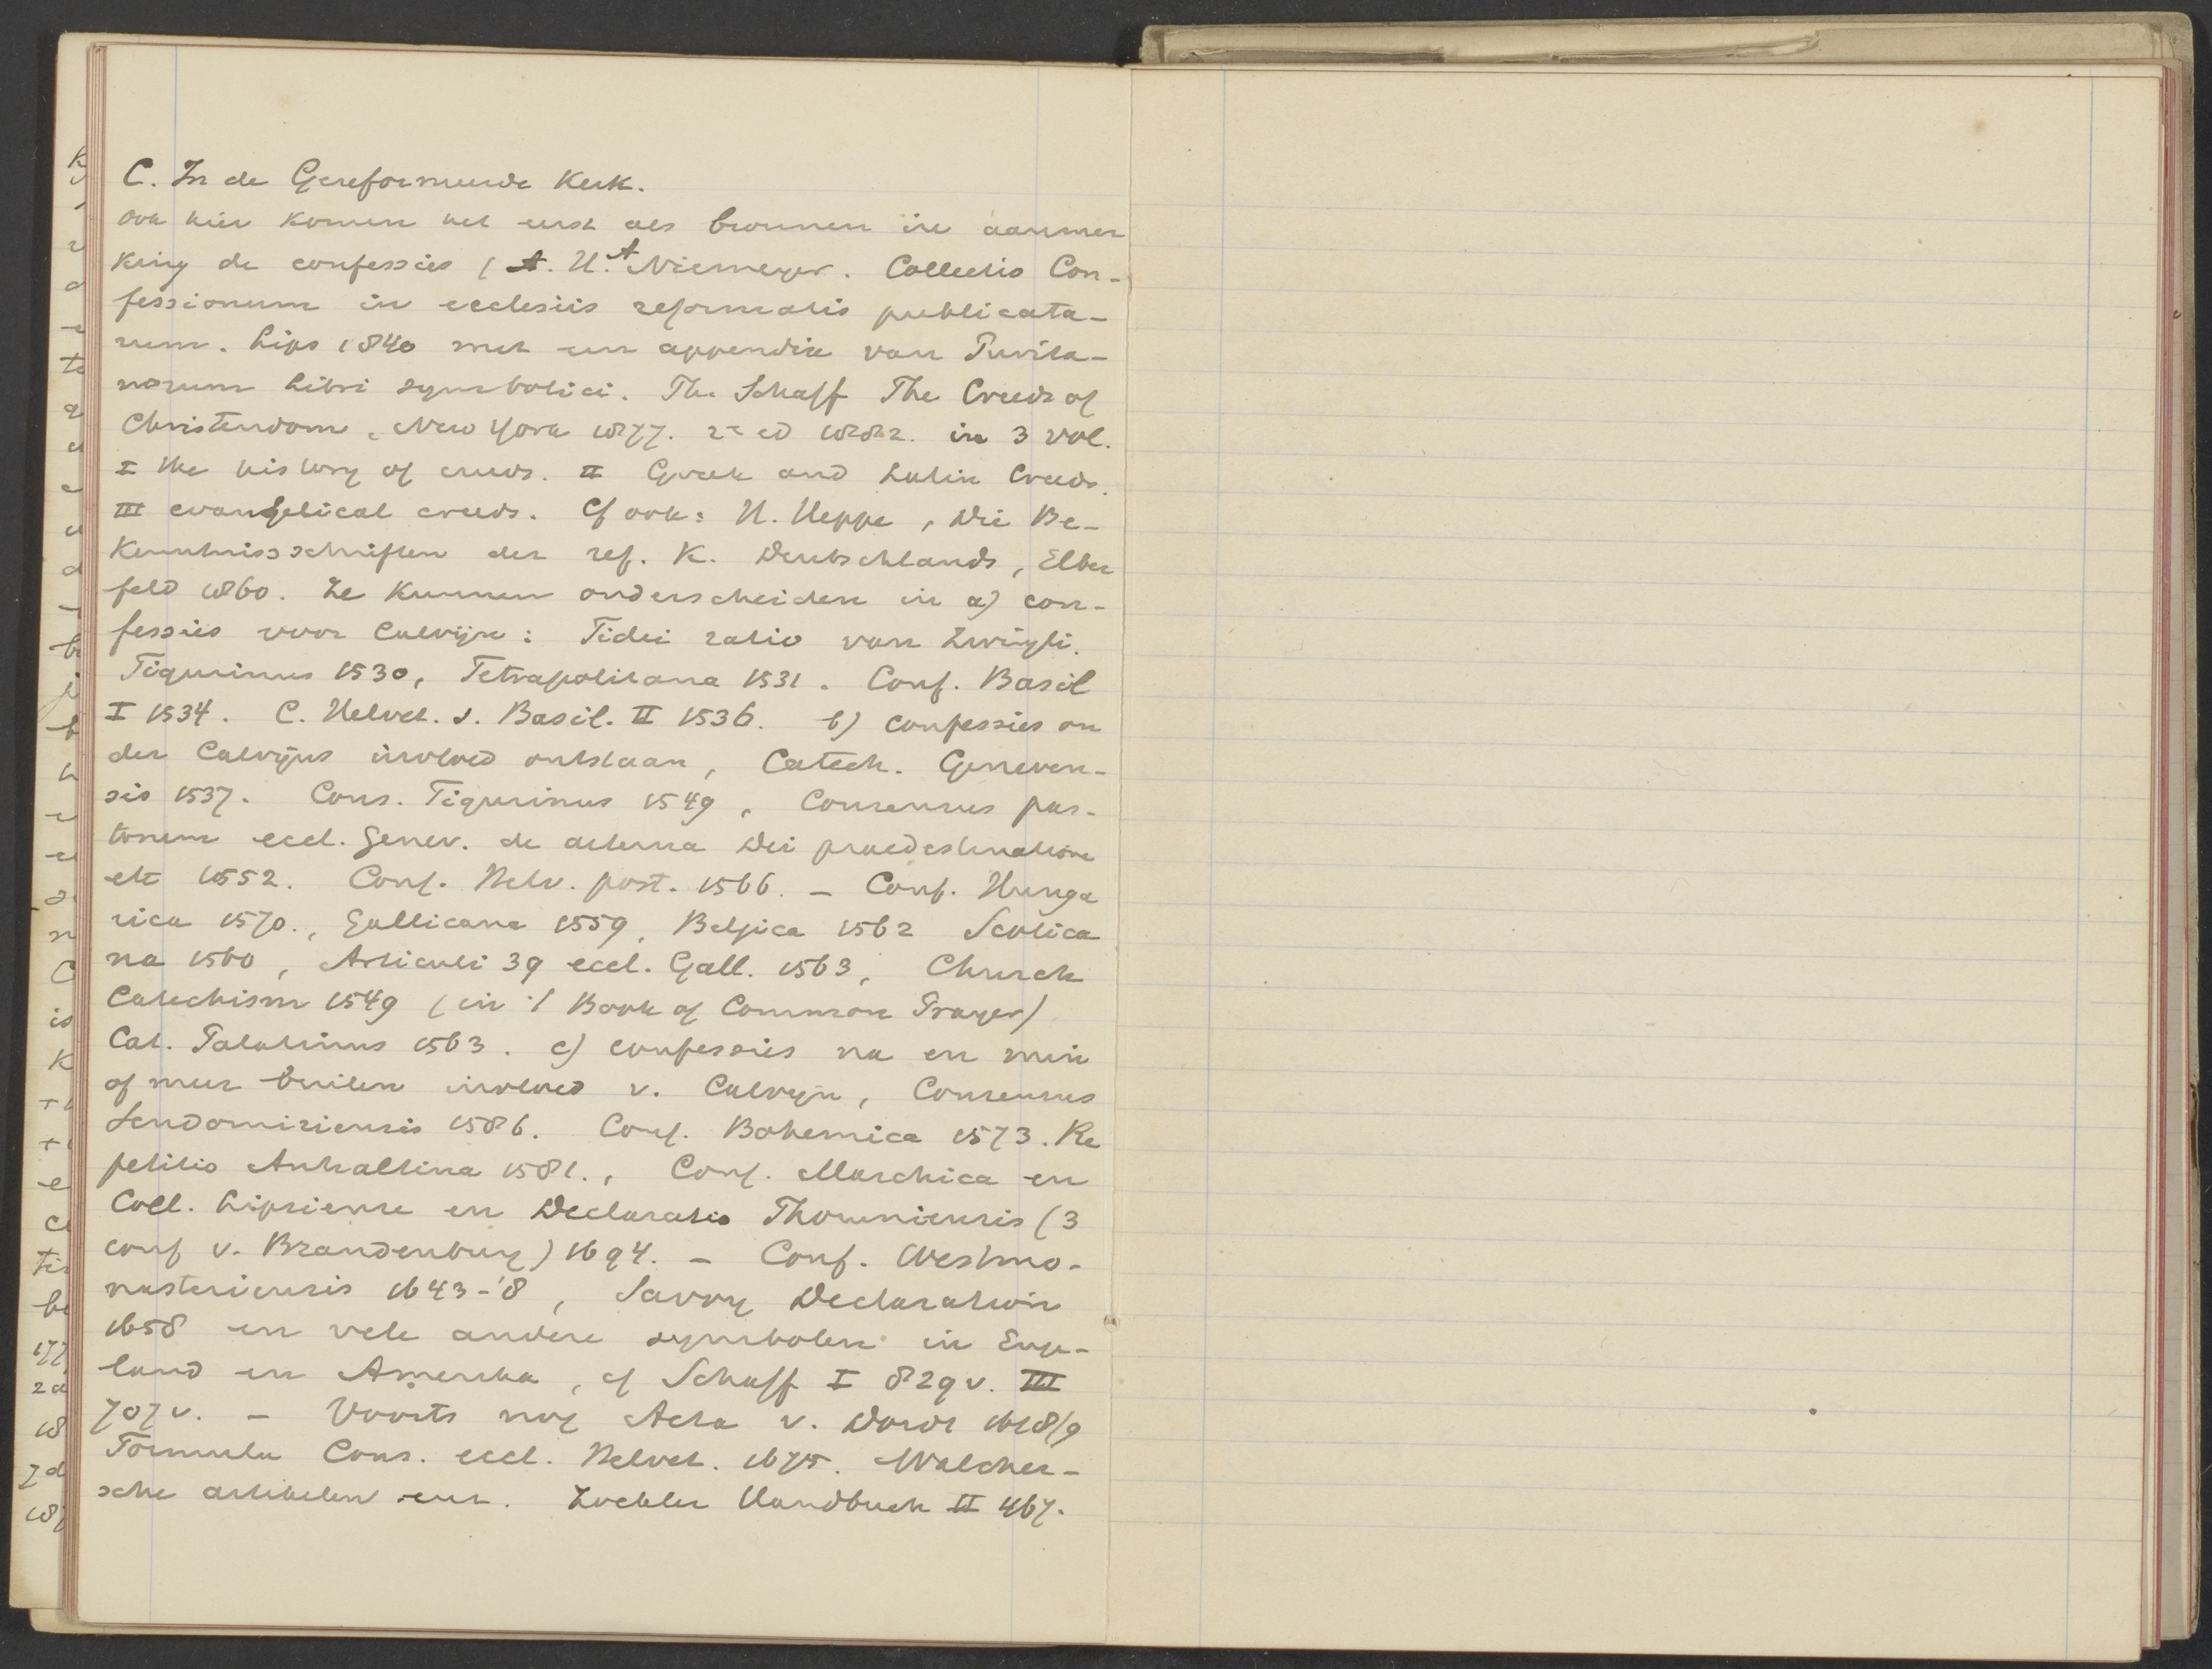 C. In de Gereformeerde Kerk.
ook hier komen het eerst als bronnen in aanmer
king de confessies ( A. H. A Niemeyer. Collectio Con-
fessionum in ecclesiis reformatis publicata-
rum. Lips 1840 met een appendix van Purita-
norum libri symbolici. Ph. Schaff The Creeds of
Christendom, New York 1877. 2e ed 1882. in 3 vol.
I the history of creeds. II Greek and Latin Creeds.
III evangelical creeds. Cf ook: H. Heppe, Die Be-
kenntnissschriften der ref. K. Deutschlands, Elber
feld 1860. Ze kunnen onderscheiden in a) con-
fessies voor Calvijn: Fidei ratio van Zwingli.
Tigurinus 1530, Tetrapolitana 1531. Conf. Basil
I 1534. C. Helvet. s. Basil. II 1536. b) confessies on
der Calvijns invloed ontstaan, Catech. Geneven-
sis 1537. Cons. Tigurinus 1549, Consensus pas-
torum eccl. Genev. de aeterna Dei praedestinatione
etc 1552. Conf. Helv. post. 1566. - Conf. Hunga
rica 1570., Gallicana 1559, Belgica 1562 Scotica
na 1560, Articuli 39 eccl. Gall. 1563, Church
Catechism 1549 (in 't Book of Common Prayer)
Cat. Palatinus 1563. c) confessies na en min
of meer buiten invloed v. Calvijn, Consensus
Sendomiriensis 1586. Conf. Bohemica 1573. Re
petitio Anhaltina 1581., Conf. Marchica en
Coll. Lipsiense en Declaratio Thorunniensis (3
conf v. Brandenburg) 1694. - Conf. Westmo-
nasteriensis 1643-'8, Savoy Declaration
1658 en vele andere symbolen in Enge-
land en Amerika, cf Schaff I 829 v. III
707 v. - Voorts nog Acta v. Dordt 1618/9
Formula Cons. eccl. Helvet. 1675. Walcher-
sche artikelen enz. Zockler Handbuch II 467.